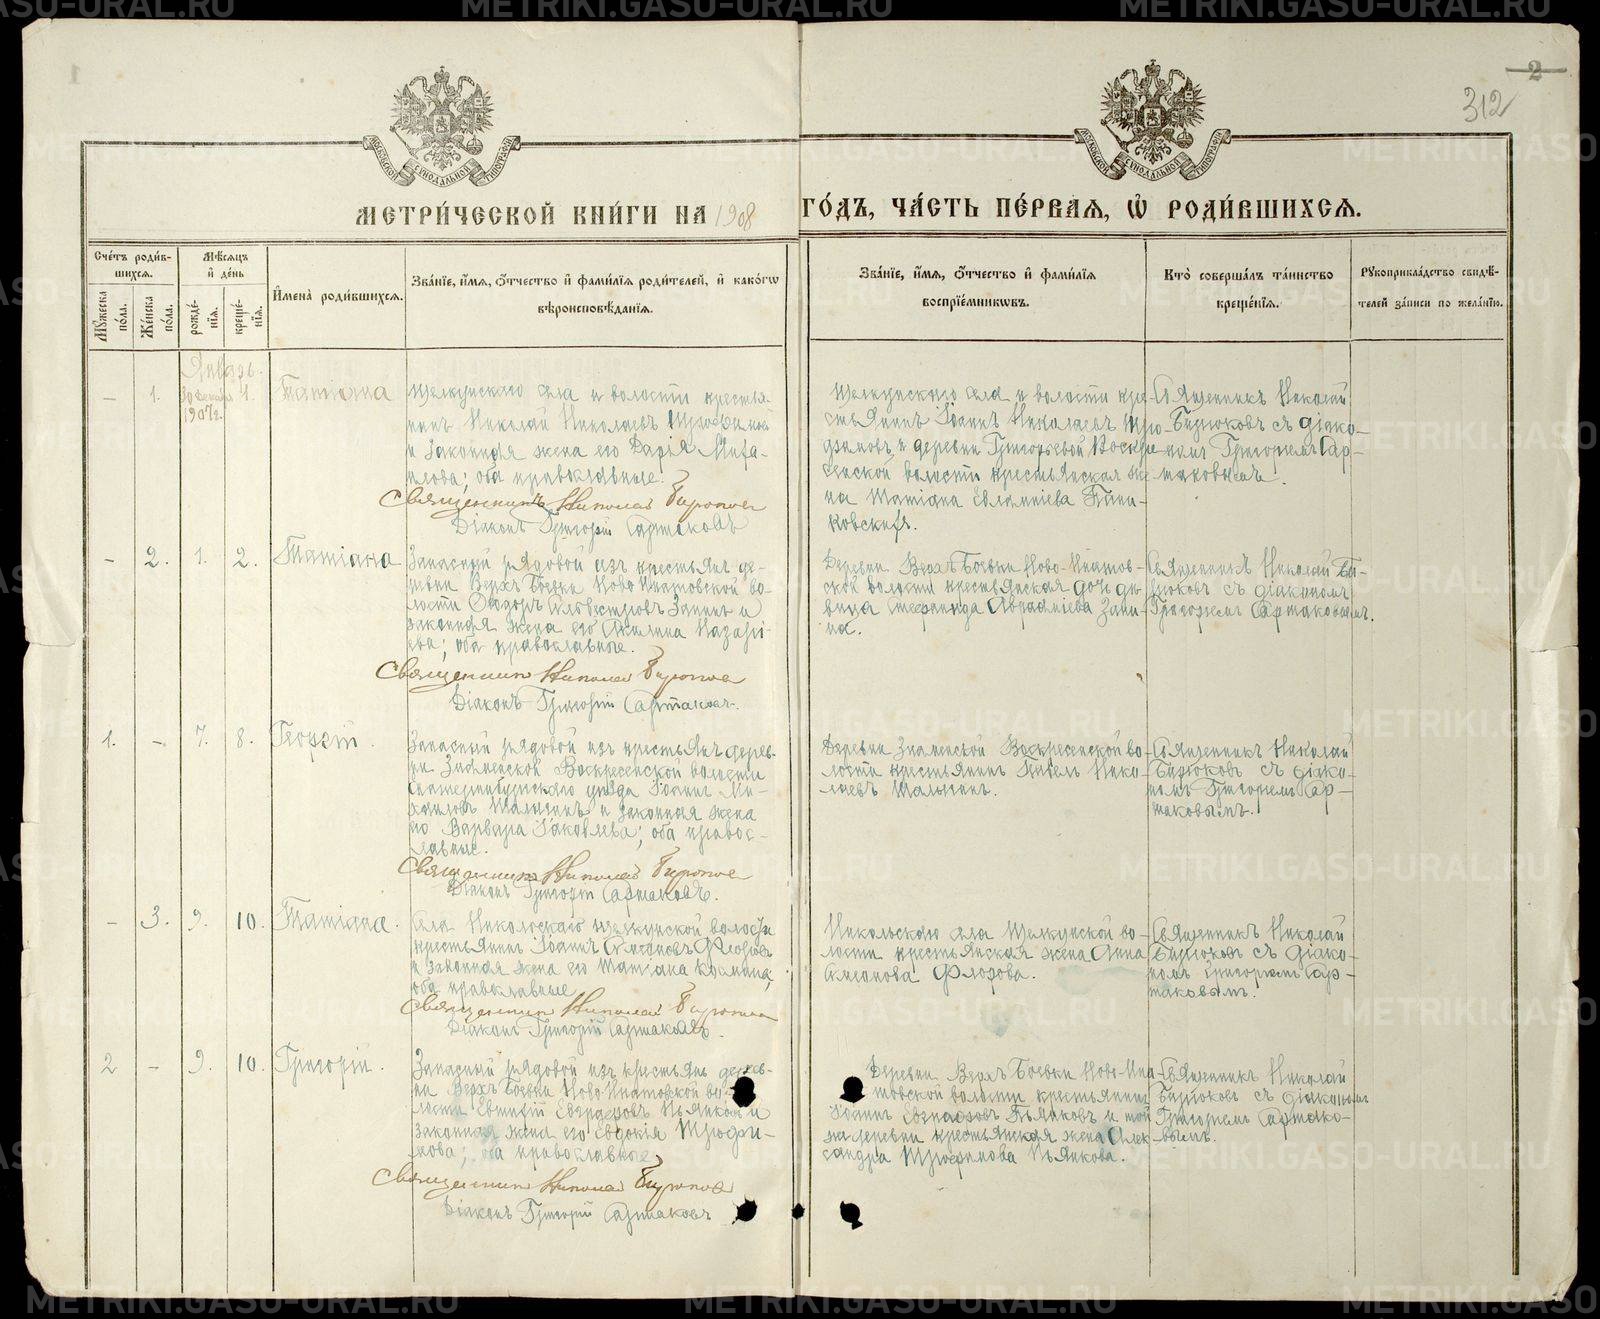 1
2
312
МОСКОВСКОЙ СѴНОДАЛЬНОЙ ТИПОГРАФІИ
МОСКОВСКОЙ СѴНОДАЛЬНОЙ ТИПОГРАФІИ
МЕТРИ́ЧЕСКОЙ КНИ́ГИ НА 1908
ГО́ДЪ, ЧА́СТЬ ПЕ́РВАЯ, Ѡ РОДИ́ВШИХСЯ.
Сче́тъ роди́в-
шихся.
Мꙋ́жеска
по́ла.
Же́нска
по́ла.
Мѣ́сяцъ
и҆ де́нь
рожде́-
нїя.
креще́-
нїя.
И҆мена̀ роди́вшихся.
Зва́нїе, и҆́мя, ѻ҆́тчество и҆ фами́лїя роди́телей, и҆ како́гѡ
вѣроисповѣ́данїя.
Зва́нїе, и҆́мя, ѻ҆́тчество и҆ фами́лїя
воспрїе́мникѡвъ.
Кто̀ соверша́лъ та́инство
креще́нїя.
Рꙋкоприкла́дство свидѣ́-
телей за́писи по жела́нїю.
Январь.
– 1. 30 Декабря 1907г. 1. Татіана
Щелкунскаго села и волости крестья-
нинъ Николай Николаевъ Трюфановъ
и законная жена его Дарія Миха-
илова; оба православные.
Священникъ Николай Бирюков
Діаконъ Григорій Сартаковъ
Щелкунскаго села и волости кре-
стьянинъ Іоаннъ Николаевъ Трю-
фановъ и деревни Григорьевой Воскре-
сенской волости крестьянская же-
на Татіана Евлампіева
Священникъ Николай
Бирюковъ съ діако-
номъ Григоріемъ Сар-
таковымъ.
– 2. 1. 2. Татіана
Запасный рядовой изъ крестьянъ де-
ревни Верхъ Боевки Ново-Ипатовской во-
лости Ѳеодоръ Селивестровъ Запинъ и
законная жена его Акилина Назарі-
ева; оба православные.
Священникъ Николай Бирюков
Діаконъ Григорій Сартаковъ.
Деревни Верхъ Боевки Ново-Ипатов-
ской волости крестьянская дочь дѣ-
вица Авраамiева Запи-
на.
Священникъ Николай Би-
рюковъ съ діакономъ
Григоріемъ Сартаковымъ.
1. – 7. 8. Георгій.
Запасный рядовой изъ крестьянъ дерев-
ни Знаменской Воскресенской волости
Екатеринбургскаго уѣзда Іоаннъ Ми-
хаиловъ и законная жена
его Варвара Іаковлева; оба правос-
лавные.
Священникъ Николай Бирюков
Діаконъ Григорій Сартаковъ.
Деревни Знаменской Воскресенской во-
лости крестьянинъ Павелъ Нико-
лаевъ
Священникъ Николай
Бирюковъ съ діако-
номъ Григоріемъ Сар-
таковымъ.
– 3. 9. 10. Татіана.
Села Никольскаго Щелкунской волости
крестьянинъ Іоаннъ Симеоновъ Флоровъ
и законная жена его Татіана
оба православные
Священникъ Николай Бирюков
Діаконъ Григорій Сартаковъ.
Никольскаго села Щелкунской во-
лости крестьянская жена Анна
Симеонова Флорова.
Священникъ Николай
Бирюковъ съ діако-
номъ Григоріемъ Сар-
таковымъ.
2 – 9. 10. Григорій.
Запасный рядовой изъ крестьянъ дерев-
ни Верхъ Боевки Ново-Ипатовской во-
лости Евгеній Пьянковъ и
законная жена его Евдокія Трюфа-
нова; оба православные.
Священникъ Николай Бирюков
Діаконъ Григорій Сартаковъ
Деревни Верхъ Боевки Ново-Ипа-
товской волости крестьянинъ
Іоаннъ Пьянковъ и той
же деревни крестьянская жена Алек-
сандра Трюфанова Пьянкова.
Священникъ Николай
Бирюковъ съ діакономъ
Григоріемъ Сартако-
вымъ.
METRIKI.GASO-URAL.RU